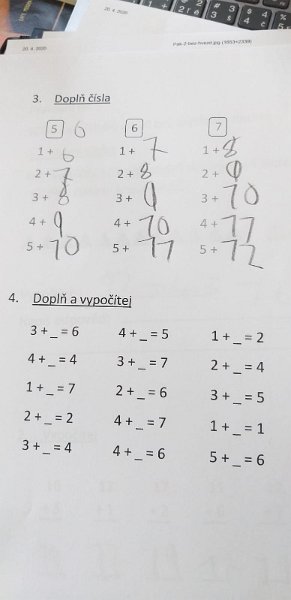 20. 4. 2020
20. 4. 2020
3. Doplň čísla
5 6 6 7
1 + 6 1 + 7 1 + 8
2 + 7 2 + 8 2 + 9
3 + 8 3 + 9 3 + 10
4 + 9 4 + 10 4 + 11
5 + 10 5 + 11 5 + 12
4. Doplň a vypočítej
3 + _ = 6 4 + _ = 5 1 + _ = 2
4 + _ = 4 3 + _ = 7 2 + _ = 4
1 + _ = 7 2 + _ = 6 3 + _ = 5
2 + _ = 2 4 + _ = 7 1 + _ = 1
3 + _ = 4 4 + _ = 6 5 + _ = 6